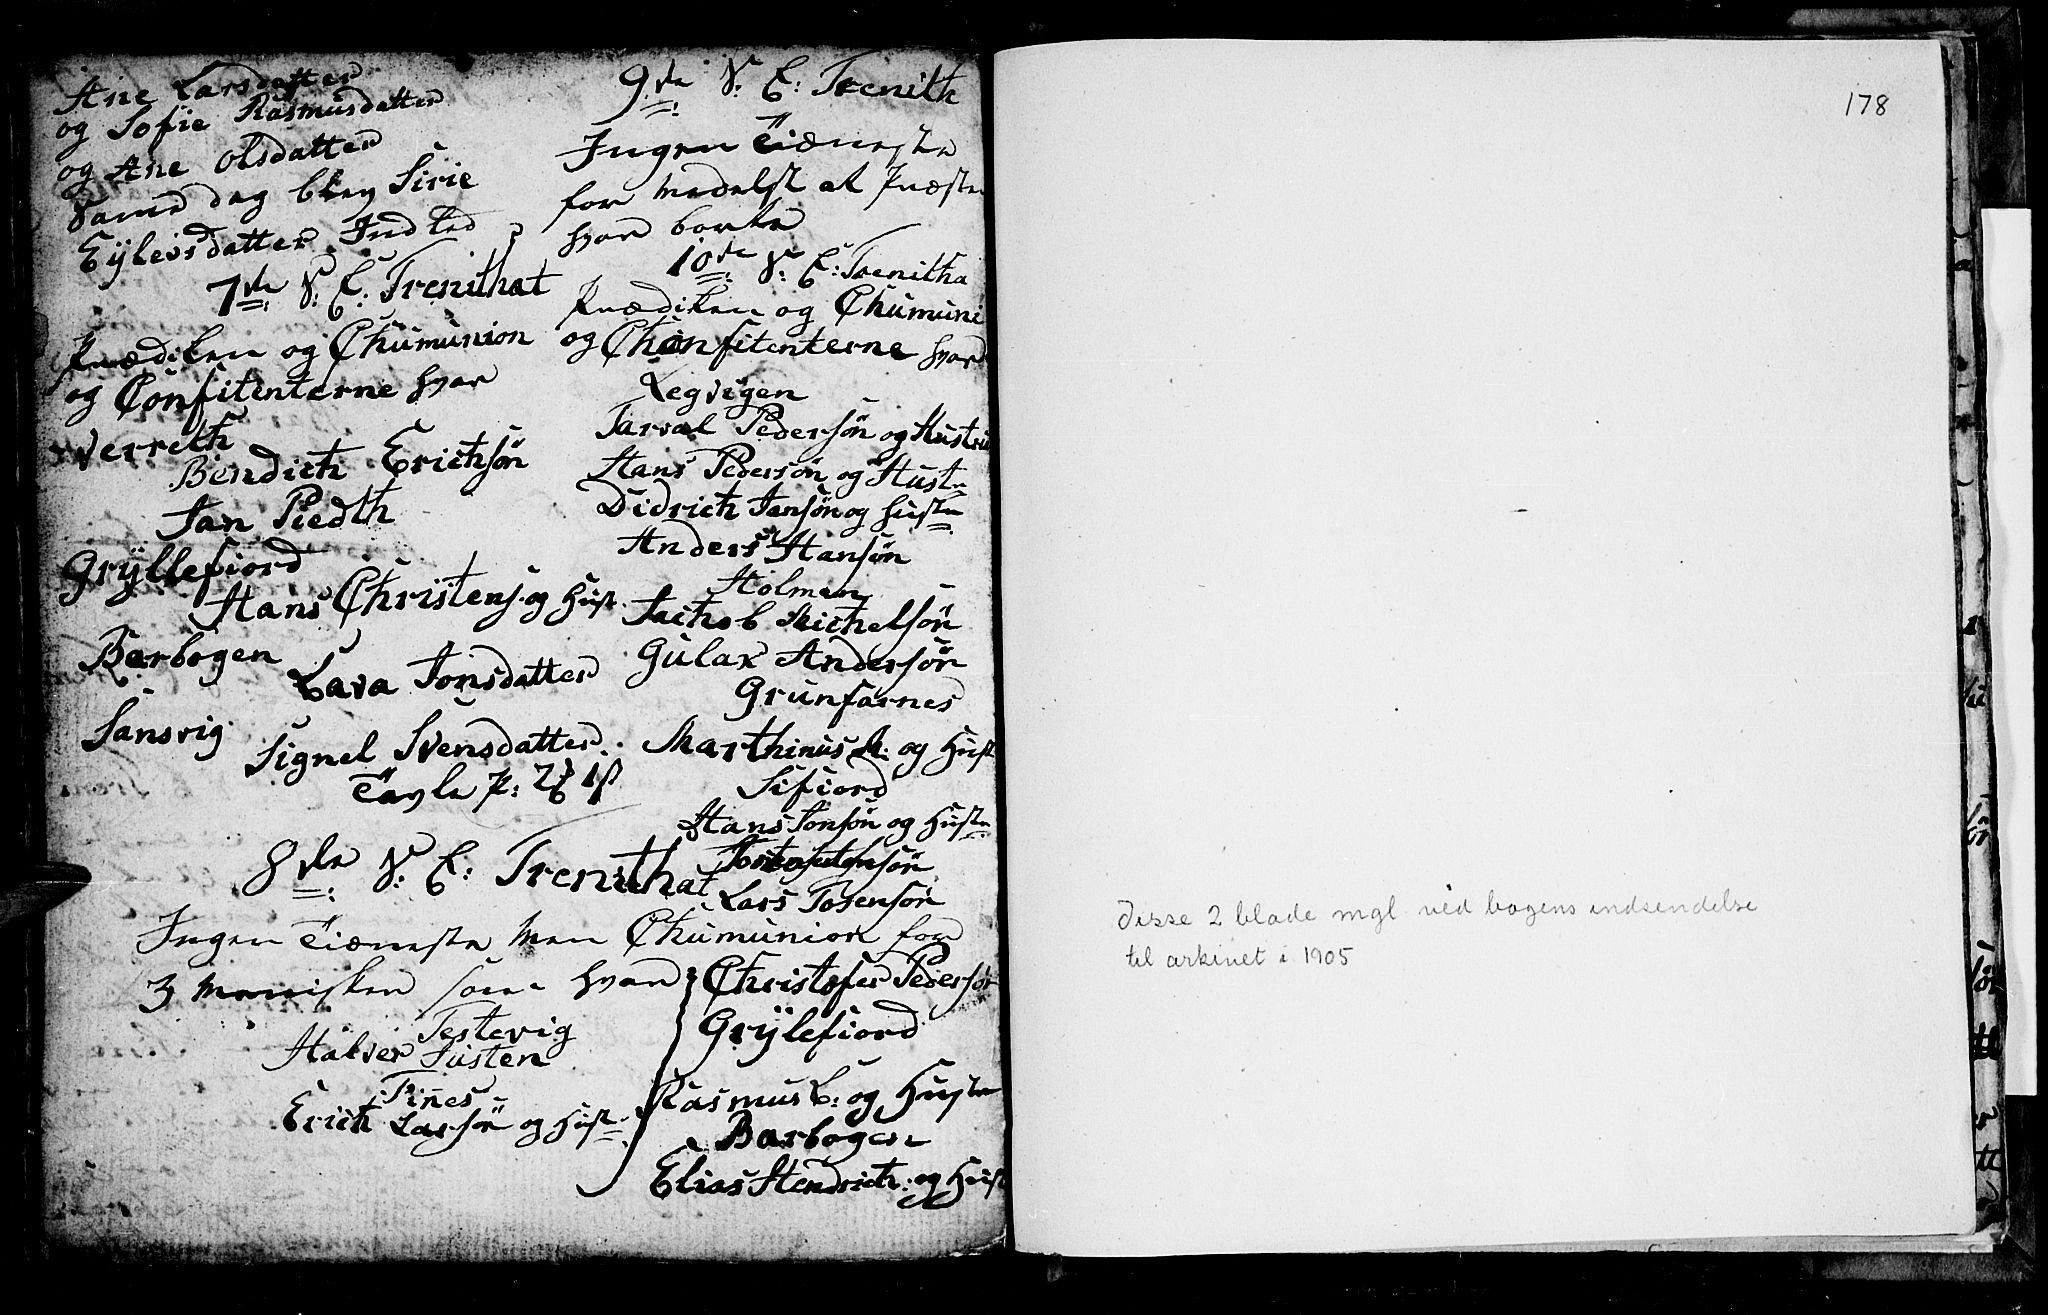 Ane Larsdatter
og Sofie Rasmusdatter
og Ane Olsdatter
Samme dag blev Sirie
Eylevsdatter Indled
7de S: E: Trenithat
Prædiken og Chumunion
og Confitenterne hvar
Verreth
Bendich Erichsøn
Jan Piedth
Gryllefiord
Hans Christens. og Hust.
Barbogen
Lava Jonsdatter
Sansvig
Signel Svensdatter
8de S: E: Trenithat
Ingen Tiæneste men Chumunion for
3 Menisker som hvar
Testevig
Halver Justen
Fines
Erich Larsøn og Hust
9de S: E: Trenith
Ingen Tiæneste
for medelst at Præsten
hvar borte
10de S: E: Trenitha
Prædiken og Chumuni
og Chonfitenterne hvar
Legvigen
Tarval Pedersøn og Hustru
Hans Pedersøn og Hust
Didrich Jansøn og Hust
Anders Hansøn
Holmen
Jachob Michelsøn
Gulax Andersøn
Grunfarnes
Marthinus M: og Hust
Sifiord
Hans Jonsøn og Hust
Lars Tosensøn
Christofer Pedersøn
Grylefiord
Rasmus L: og Hust
Barbogen
Elias Hendrich: og Hust
178
Disse 2 blade mgl ved bogens indsendelse
til arkivet i 1905